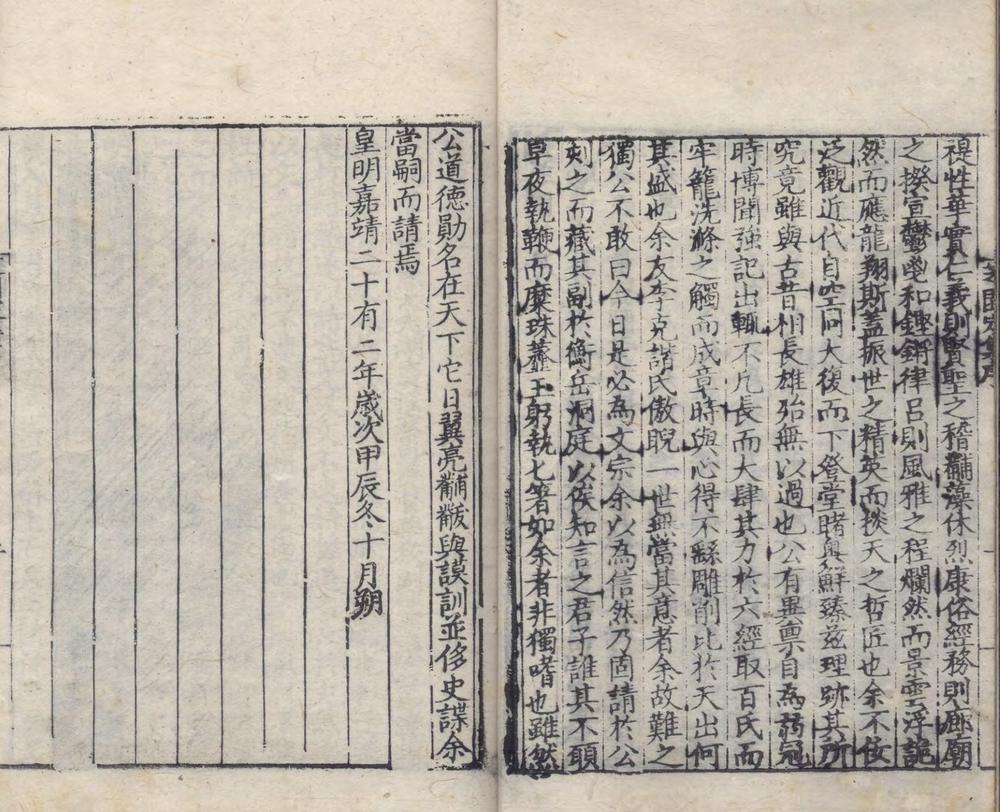 禔性華實仁義則賢聖之稽黼藻休烈康俗經務則廊廟
之揆宣鬱鬯和鏗鏘律呂則風雅之程爛然而景雲浮詭
然而應龍翔斯蓋振世之精英而掞天之哲匠也余不佞
泛觀近代自空同大復而下登堂睹奧鮮臻茲理跡其所
究竟雖與古昔相長雄殆無以過也公有異稟自為弱冠
時博聞強記出輒不凡長而大肆其力於六經取百氏而
牢籠洗滌之觸而成章時與心得不繇雕削比於天出何
其盛也余友李克諧氏傲睨一世無當其意者余故難之
獨公不敢曰今日是必為文宗余以為信然乃固請於公
刻之而藏其副於衡岳洞庭以俟知言之君子誰其不願
早夜執鞭而糜珠虀玉躬執匕箸如余者非獨嗜也雖然
公道德勛名在天下它日翼亮黼黻與謨訓並侈史諜余
當嗣而請焉
皇明嘉靖二十有二年歲次甲辰冬十月朔